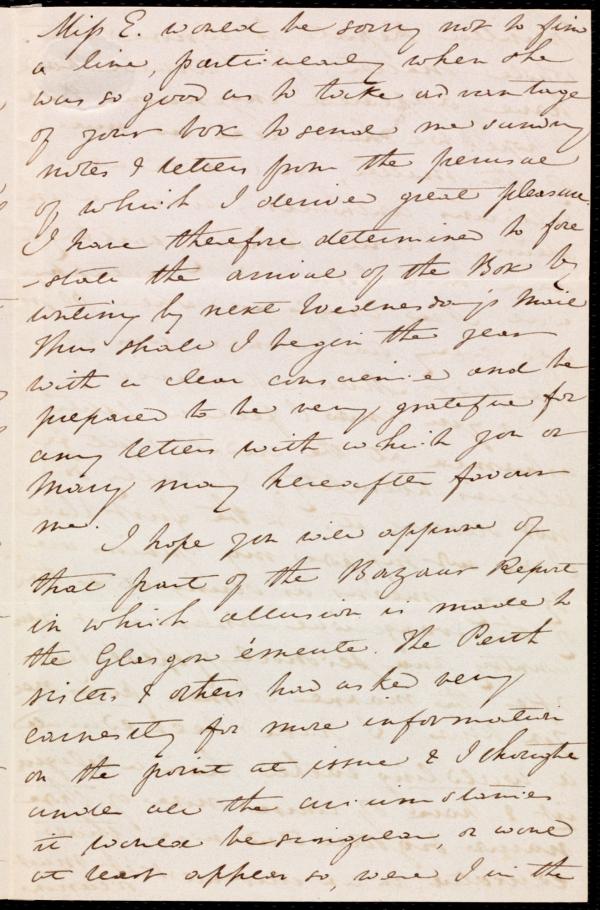 Miss E. would be sorry not to find
a line, particularly when she
was so good as to take advantage
of your box to send me sundry
notes & letters from the perusal
of which I derive great pleasure.
I have therefore determined to fore
-stall the arrival of the Box by
writing by next Wednesday's Mail
Thus shall I begin the year
with a clear conscience and be
prepared to be very grateful for
any letters with which you or
Mary may hereafter favour
me.
I hope you will approve of
that part of the Bazaar Report
in which allusion is made to
the Glasgow émeute. The Perth
sisters & others had asked very
earnestly for more information
on the point at issue & I thought
under all the circumstances
it would be singular, or would
at least appear so, were I in the